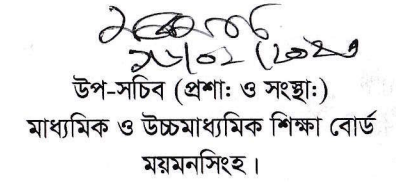 উপ-সচিব (প্রশাঃ ও সংস্থাঃ)
মাধ্যমিক ও উচ্চমাধ্যমিক শিক্ষা বোর্ড
ময়মনসিংহ।